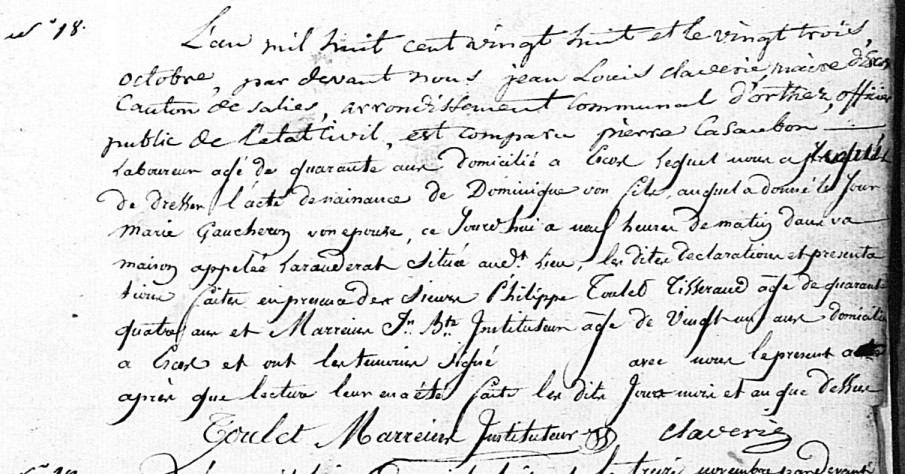 n° 18.
L'an mil huit cent vingt huit et le vingt trois
octobre, par devant nous jean Louis claverie, maire d'Escos
Canton de Salies, arrondissement Communal d'orthez, officier
public de l'etat Civil, est comparu pierre Casaubon
Laboureur agé de quarante ans domicilié a Escos lequel nous a requis
de dresser l'acte de naissance de Dominique son fils, auquel a donné le jour
marie Gaucheron son epouse, ce jourd'hui a neuf heures de matin dans sa
maison appelée situé aud.t lieu, les dites declarations et presenta
tions faites en presence des sieurs Philippe Toulet Tisserand agé de quarante
quatre ans et Marreine J.n B.te Instituteur agé de Vingt un ans domiciliés
a Escos et ont les temoins signé avec nous le present acte
après que lecture leur en a été faite les dits jours mois et an que dessus
Toulet Marreine Instituteur claverie
novembre par devant